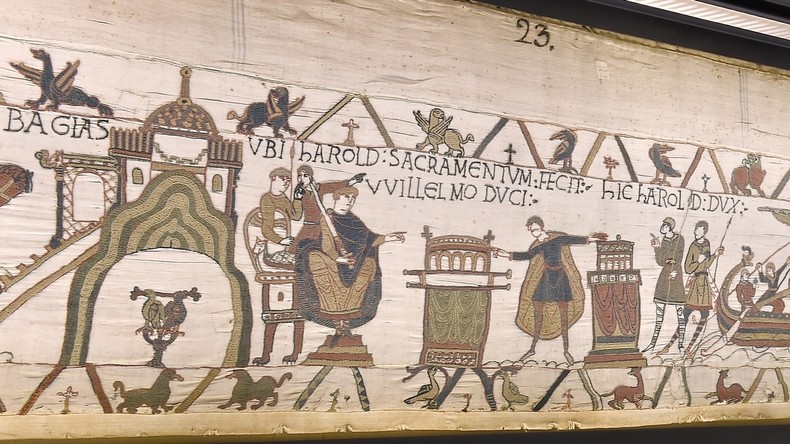 23.
BAGIAS
VBI hAROLD : SACRAMENTVM : FECIT :
VVILLELMO DVCI :
hIC hAROLD : DVX :